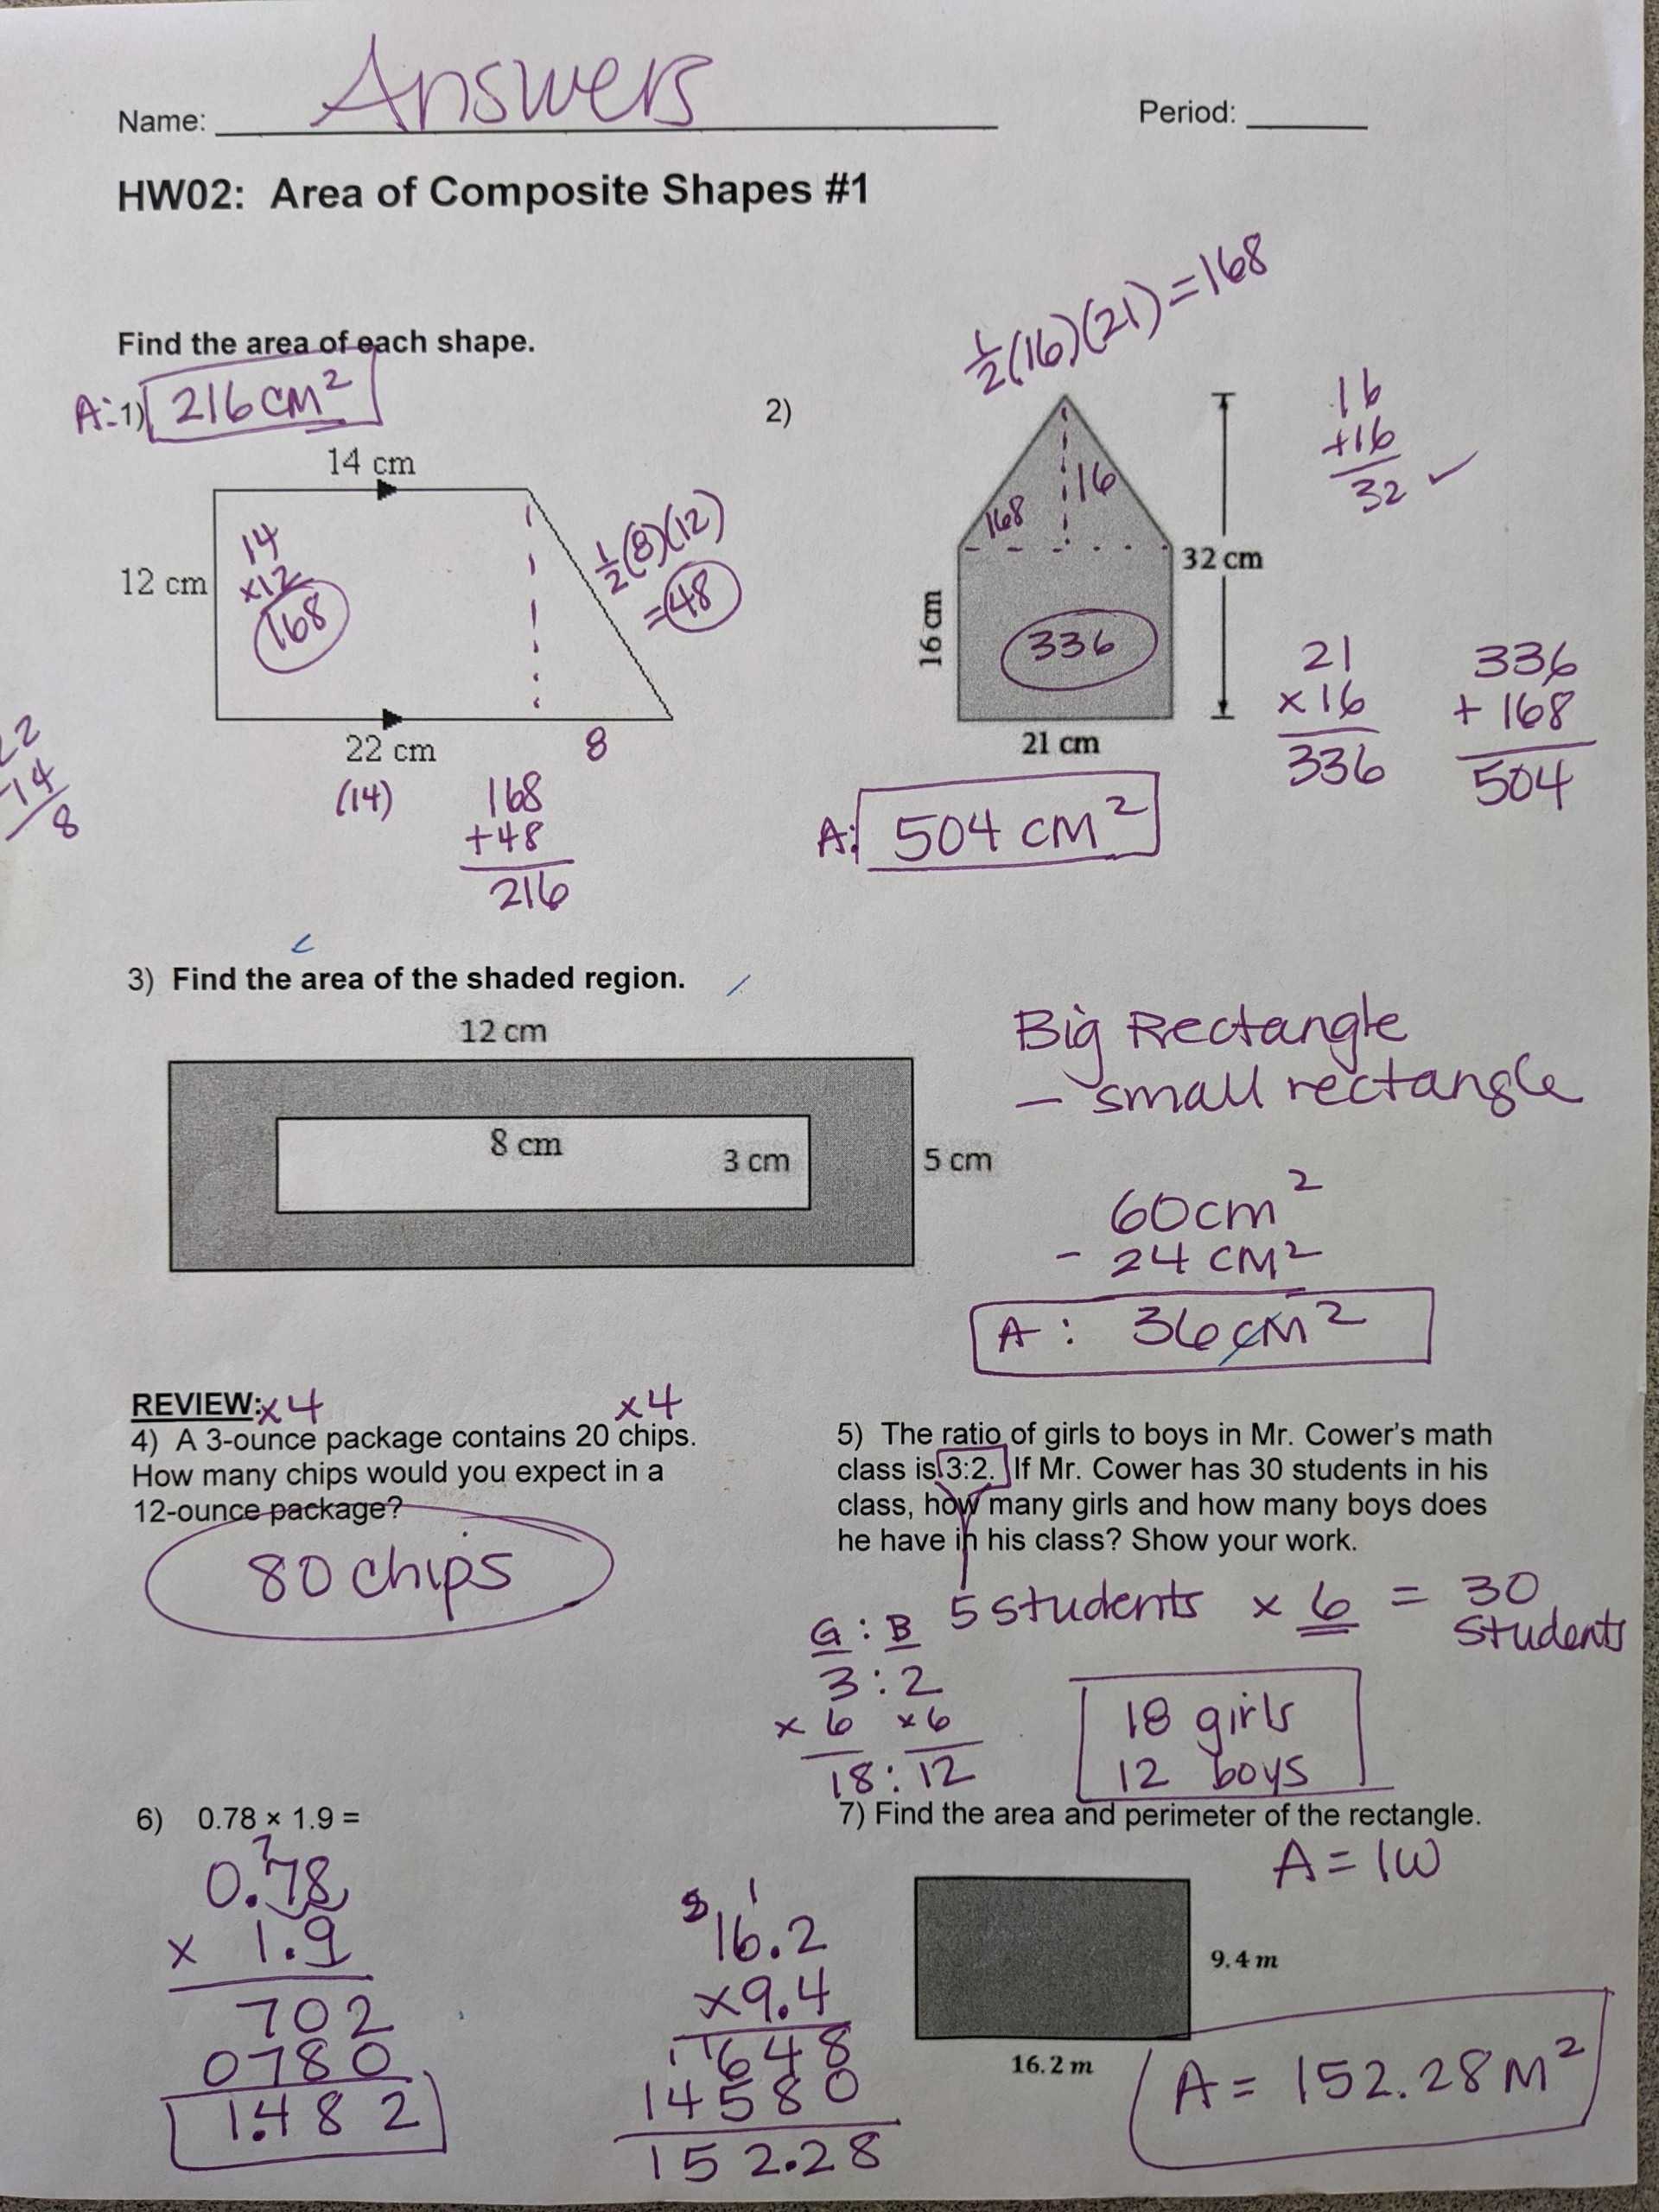 Name: Answers Period:
HW02: Area of Composite Shapes #1
Find the area of each shape.
A: 1) 216 cm²
14 cm
12 cm
14
×12
168
½(8)(12)
=48
22 cm
8
(14)
22
14
8
168
+48
216
2)
½(16)(21)=168
168
16
16 cm
32 cm
336
21 cm
16
+16
32 ✓
21
×16
336
336
+168
504
A: 504 cm²
3) Find the area of the shaded region.
12 cm
8 cm
3 cm
5 cm
Big Rectangle
- small rectangle
60cm²
- 24 cm²
A: 36cm²
REVIEW: ×4 ×4
4) A 3-ounce package contains 20 chips.
How many chips would you expect in a
12-ounce package?
80 chips
5) The ratio of girls to boys in Mr. Cower's math
class is 3:2. If Mr. Cower has 30 students in his
class, how many girls and how many boys does
he have in his class? Show your work.
5 students × 6 = 30
students
G : B
3 : 2
× 6 ×6
18 : 12
18 girls
12 boys
6) 0.78 × 1.9 =
7
0.78
× 1.9
702
0780
1.482
7) Find the area and perimeter of the rectangle.
A = lw
9.4 m
16.2 m
1
16.2
×9.4
648
14580
152.28
A = 152.28 M²